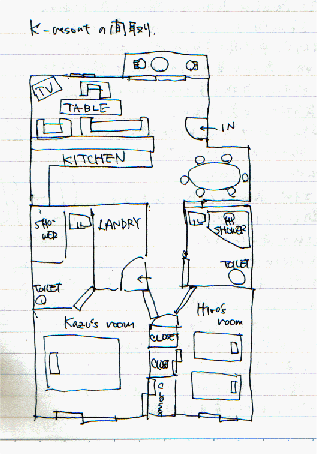 K-resort の間取り.
TV
TABLE
← IN
KITCHEN
SHOWER
LANDRY
SHOWER
TOILET
TOILET
Kazu's room
Hiro's room
CLOSET
CLOSET
CLOSET